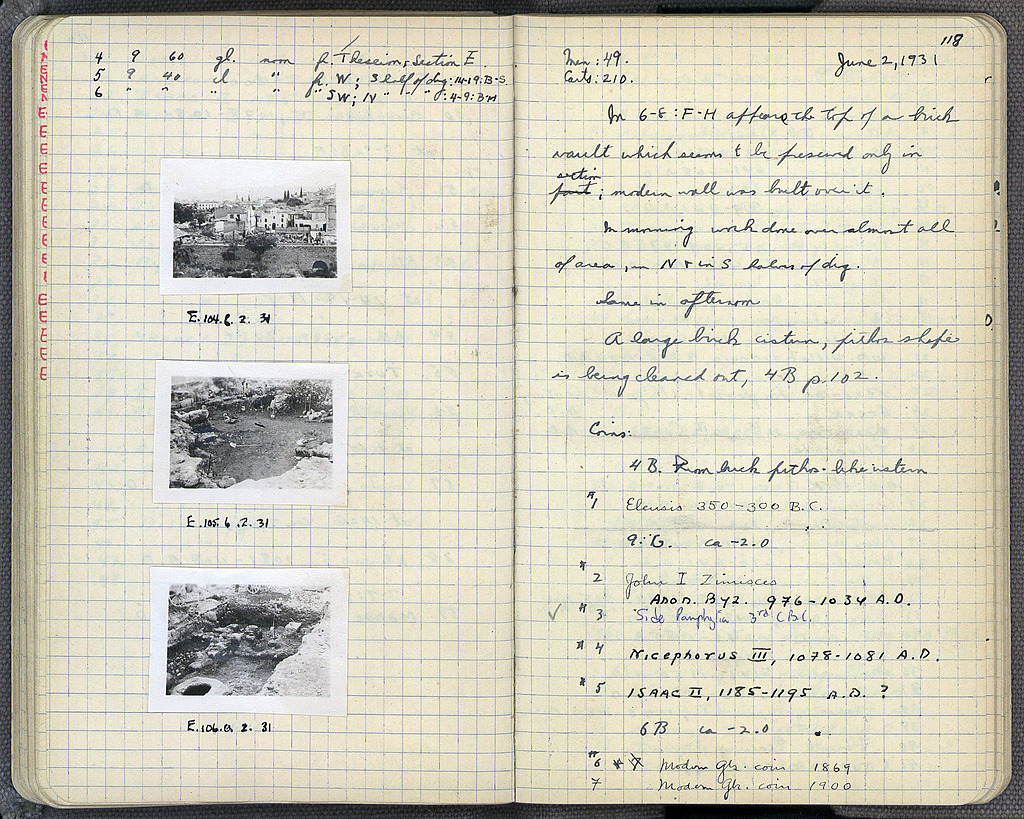 4 9 60 gl. noon fr. Theseion; Section E
5 9 40 cl " fr. W; S half of dig: 14-19:B-S
6 " " " " " SW; N " " " : 4-9:B-M
E.104.6.2.31
E.105.6.2.31
E.106.6.2.31
118
Men: 49. June 2, 1931
Carts: 210.
In 6-8:F-H appears the top of a brick
vault which seems t be preserved only in
section
part; modern wall was built over it.
In morning work done over almost all
of area, in N & in S halves of dig.
Same in afternoon
A large brick cistern, pithos shape
is being cleared out, 4B p. 102.
Coins:
4 B. From brick pithos-like cistern
#1 Eleusis 350-300 B.C.
9:G. ca -2.0
#2 John I Zimisces
Anon. Byz. 976-1034 A.D.
✓ #3 Side Pamphylia 3rd C B.C.
#4 Nicephorus III, 1078-1081 A.D.
#5 ISAAC II, 1185-1195 A.D. ?
6 B ca -2.0
#6 Modern Gk. coin 1869
7 Modern Gk. coin 1900